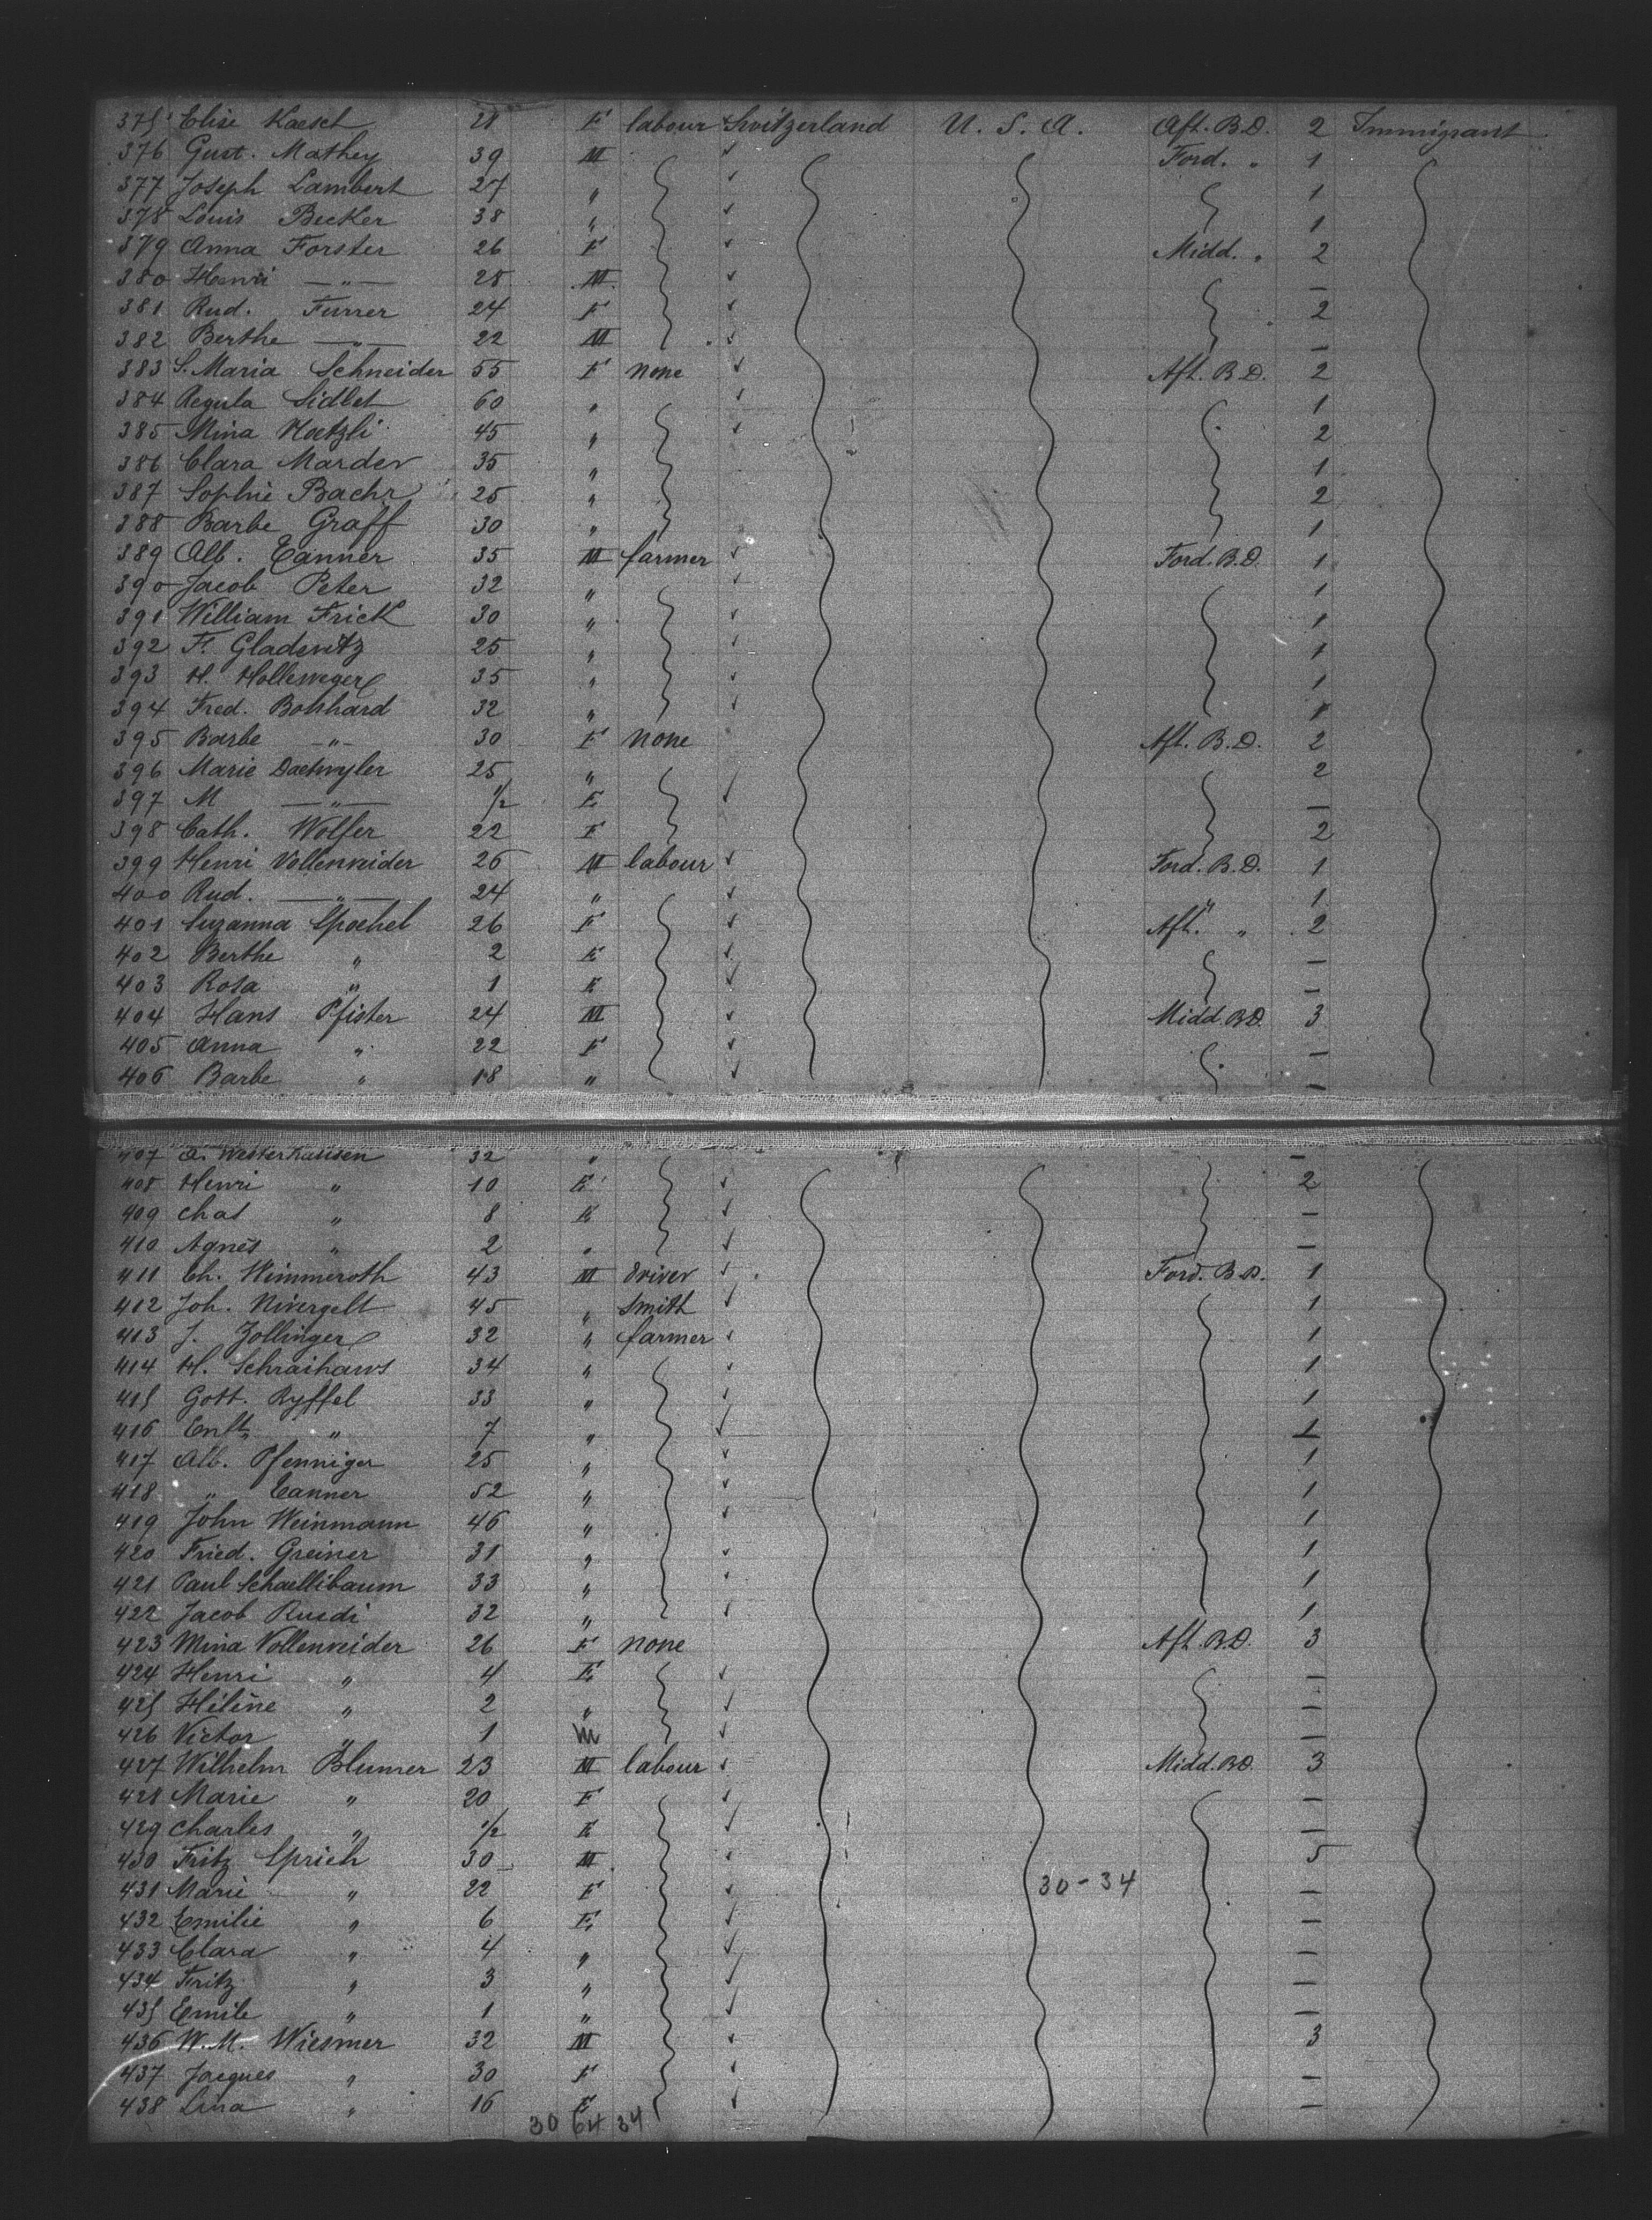 375 Elise Kaesch 28 F labour Switzerland U. S. A. Aft. B.D. 2 Immigrant
376 Gust. Mathey 39 M Ford. " 1
377 Joseph Lambert 27 " 1
378 Louis Becker 38 " 1
379 Anna Forster 26 F Midd. " 2
380 Henri —"— 28 M —
381 Rud. Furrer 24 F 2
382 Berthe —"— 22 M —
383 S. Maria Schneider 55 F none Aft. B.D. 2
384 Regula Sidlet 60 " 1
385 Mina Hoetzli 45 " 2
386 Clara Marder 35 " 1
387 Sophie Bachr 25 " 2
388 Barbe Graff 30 " 1
389 Alb. Tanner 35 M farmer Ford. B.D. 1
390 Jacob Peter 32 " 1
391 William Frick 30 " 1
392 F. Gladenitz 25 " 1
393 H. Holleweger 35 " 1
394 Fred. Boshard 32 " 1
395 Barbe —"— 30 F none Aft. B.D. 2
396 Marie Daetwyler 25 " 2
397 M —"— 1/2 E —
398 Cath. Wolfer 22 F 2
399 Henri Vollenweider 26 M labour Ford. B.D. 1
400 Rud. —"— 24 " 1
401 Suzanna Spoehel 26 F Aft. " 2
402 Berthe " 2 E —
403 Rosa " 1 E —
404 Hans Pfister 24 M Midd. B.D. 3
405 Anna " 22 F —
406 Barbe " 18 " —
407 A. Westerhausen 32 " —
408 Henri " 10 E 2
409 Chas " 8 E —
410 Agnès " 2 " —
411 Ch. Wimmeroth 43 M driver Ford. B.D. 1
412 Joh. Nivergelt 45 " smith 1
413 J. Zollinger 32 " farmer 1
414 H. Schraihans 34 " 1
415 Gott. Ryffel 33 " 1
416 Ernst " 7 " 1
417 Alb. Pfenniger 25 " 1
418 " Tanner 52 " 1
419 John Weinmann 46 " 1
420 Fried. Greiner 31 " 1
421 Paul Schaellibaum 33 " 1
422 Jacob Ruedi 32 " 1
423 Mina Vollenweider 26 F none Aft. B.D. 3
424 Henri " 4 E —
425 Hélène " 2 " —
426 Victor " 1 M —
427 Wilhelm Blumer 23 M labour Midd. B.D. 3
428 Marie " 20 F —
429 Charles " 1/2 E —
430 Fritz Sprich 30 M 5
431 Marie " 22 F 30-34 —
432 Emilie " 6 E —
433 Clara " 4 " —
434 Fritz " 3 " —
435 Emile " 1 " —
436 W. M. Wiesmer 32 M 3
437 Jacques " 30 F —
438 Lina " 16 E —
30 64 34